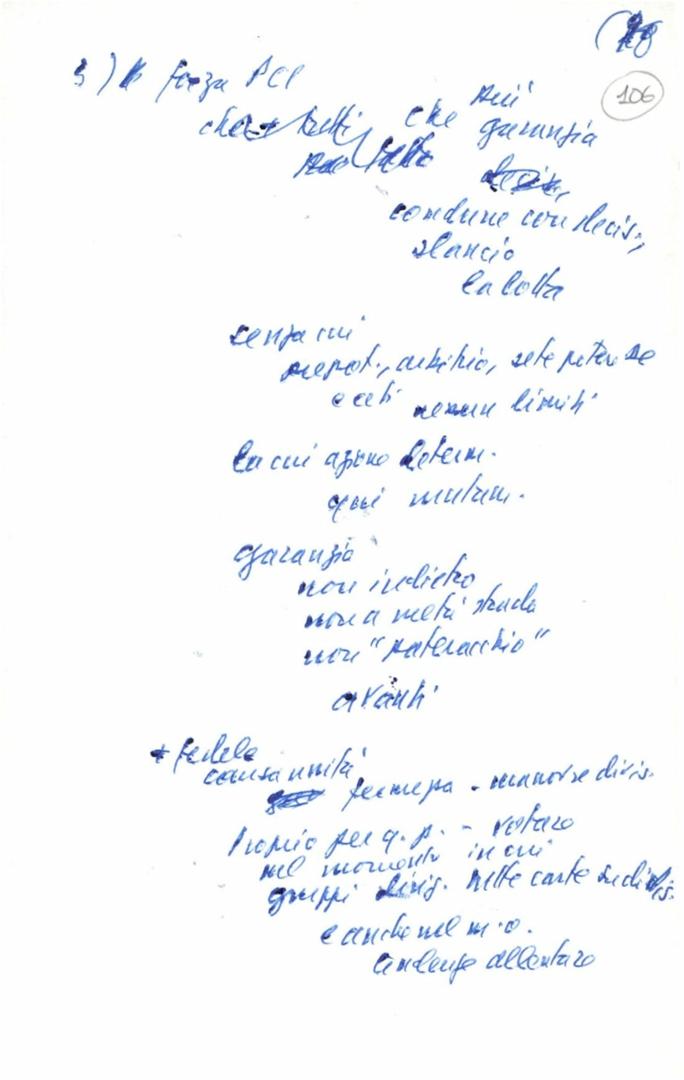 106
3) forza PCI
che tutti che più
garanzia
condurre con decis.,
slancio
la lotta
senza cui
prepot., arbitrio, sete potere se
e ceti nessun limiti
la cui azione determ.
qui mutam.
garanzia
non indietro
non a metà strada
non "pateracchio"
avanti
+ fedele
causa unità
fermezza - manovre divis.
Proprio per q. p. - votare
nel momento in cui
gruppi dirig. mette carte su divis.
e anche nel m.o.
tendenze allentare